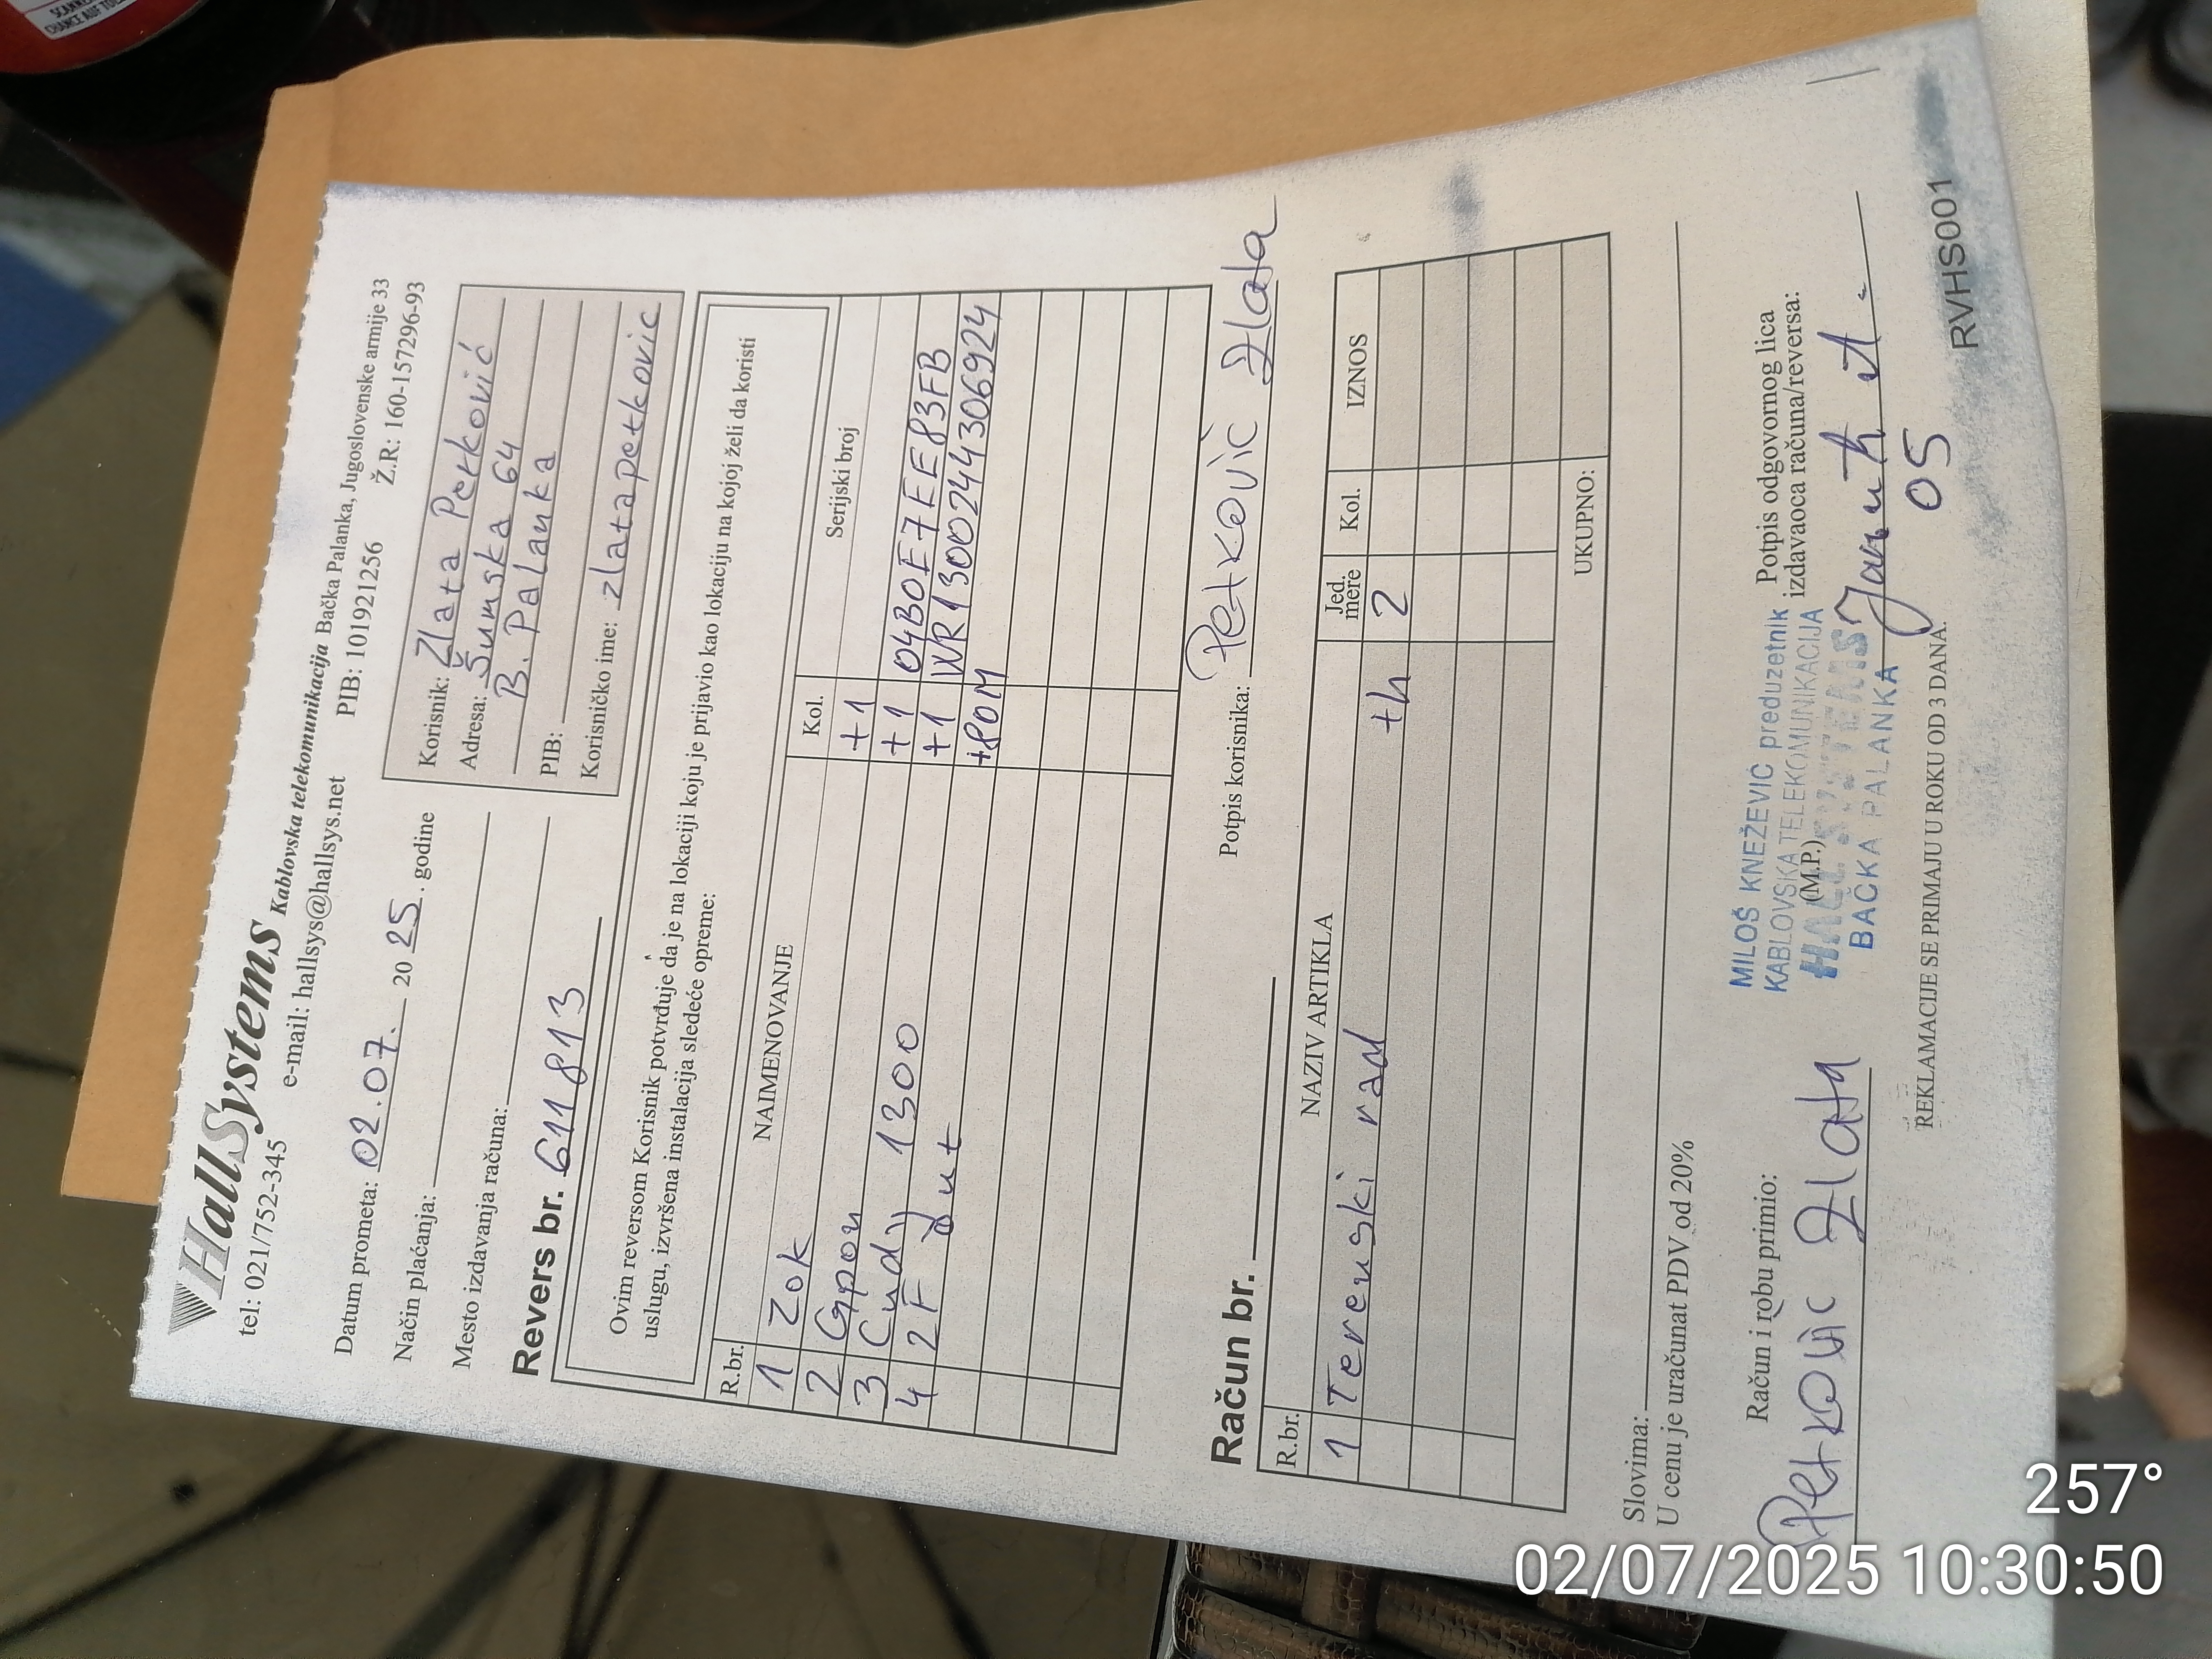 HallSystems Kablovska telekomunikacija Bačka Palanka, Jugoslovenske armije 33
tel: 021/752-345 e-mail: hallsys@hallsys.net PIB: 101921256 Ž.R: 160-157296-93
Datum prometa: 02.07. 20 25. godine
Način plaćanja:
Mesto izdavanja računa:
Revers br. 611813
Korisnik: Zlata Petković
Adresa: Šumska 64
B. Palanka
PIB:
Korisničko ime: zlatapetkovic
Ovim reversom Korisnik potvrđuje da je na lokaciji koju je prijavio kao lokaciju na kojoj želi da koristi
uslugu, izvršena instalacija sledeće opreme:
R.br. NAIMENOVANJE Kol. Serijski broj
1 ZOK +1
2 Gpon +1 04B0E7EE83FB
3 Cudy 1300 +1 WR13002444306924
4 2F +80M
Potpis korisnika: Petković Zlata
Račun br.
R.br. NAZIV ARTIKLA Jed. mere Kol. IZNOS
1 Terenski rad th 2
UKUPNO:
Slovima:
U cenu je uračunat PDV od 20%
Račun i robu primio:
Petković Zlata
MILOŠ KNEŽEVIĆ preduzetnik
KABLOVSKA TELEKOMUNIKACIJA
(M.P.)
HALL SYSTEMS
BAČKA PALANKA
Potpis odgovornog lica
izdavaoca računa/reversa:
05
REKLAMACIJE SE PRIMAJU U ROKU OD 3 DANA.
RVHS001
257°
02/07/2025 10:30:50